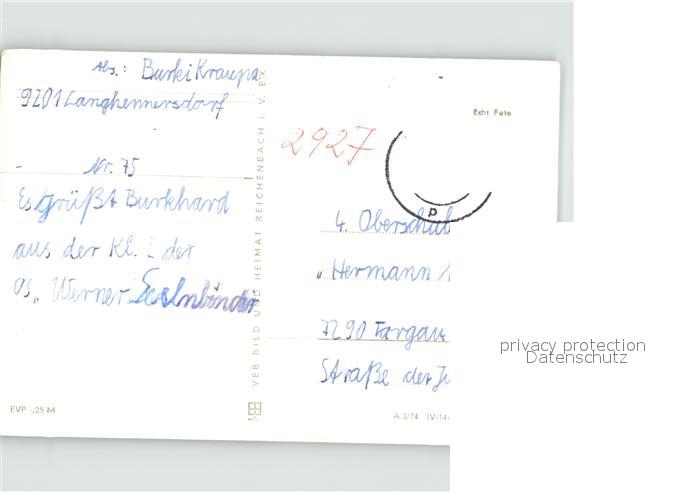 Abs.: Burki Kraupa
9201 Langhennersdorf
Nr. 75
Es grüßt Burkhard
aus der Kl. der
OS „Werner Seelenbinder
EVP -,25 M
VEB BILD UND HEIMAT REICHENBACH I. V.
Echt Foto
2927
p
4. Oberschul
„Hermann
7290 Torgau
Straße der Ju
A 3/74 IV-14-
privacy protection
Datenschutz